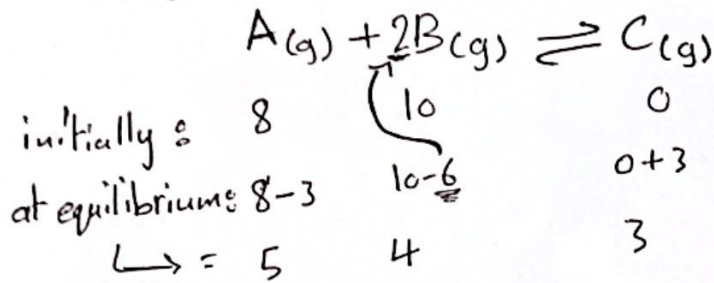 A(g) + 2B(g) ⇌ C(g)
initially: 8 10 0
at equilibrium: 8-3 10-6 0+3
↳ = 5 4 3